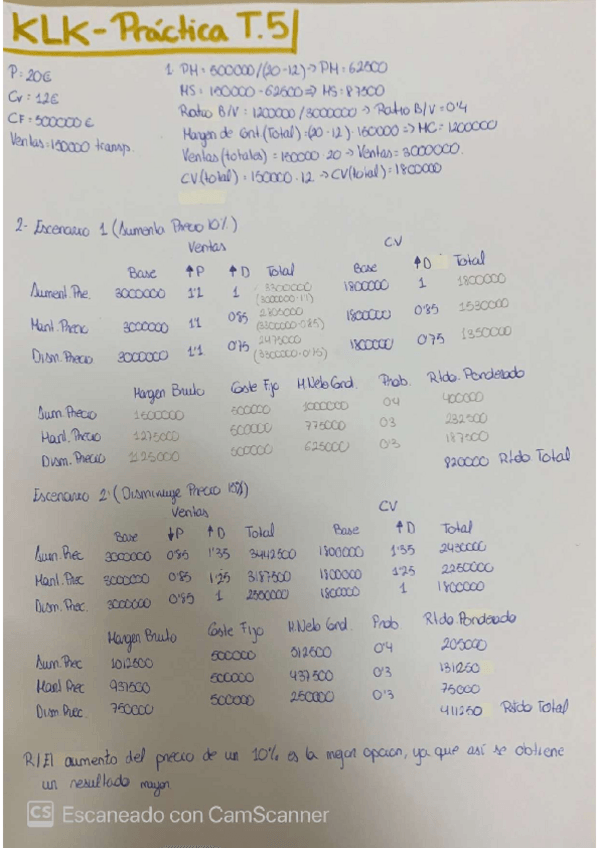 KLK-Práctica T.5
P: 20€
Cv: 12€
CF: 500000€
Ventas: 150000 transp.
1. PM = 500000/(20-12) → PM = 62500
MS = 150000 - 62500 ⇒ MS = 87500
Ratio B/V = 1200000 / 3000000 → Ratio B/V = 0'4
Margen de Cont (Total) = (20-12) · 150000 ⇒ MC = 1200000
Ventas (totales) = 150000 · 20 → Ventas = 3000000.
CV (total) = 150000 · 12 → CV (total) = 1800000
2- Escenario 1 (Aumenta Precio 10%)
Ventas CV
Base ↑P ↑D Total Base ↑D Total
Aument. Pre. 3000000 1'1 1 3300000 (3000000·1'1) 1800000 1 1800000
Mant. Precio 3000000 1'1 0'85 2805000 (3300000·0.85) 1800000 0'85 1530000
Dism. Precio 3000000 1'1 0'75 2475000 (3300000·0'75) 1800000 0'75 1350000
Margen Bruto Coste Fijo M.Neto Cond. Prob. Rtdo. Ponderado
Aum. Precio 1500000 500000 1000000 0'4 400000
Mant. Precio 1275000 500000 775000 0'3 232500
Dism. Precio 1125000 500000 625000 0'3 187500
820000 Rtdo Total
Escenario 2: (Disminuye Precio 15%)
Ventas CV
Base ↓P ↑D Total Base ↑D Total
Aum. Prec 3000000 0'85 1'35 3442500 1800000 1'35 2430000
Mant. Prec 3000000 0'85 1'25 3187500 1800000 1'25 2250000
Dism. Prec. 3000000 0'85 1 2550000 1800000 1 1800000
Margen Bruto Coste Fijo M.Neto Cond. Prob. Rtdo. Ponderado
Aum. Prec 1012500 500000 512500 0'4 205000
Mant. Prec 937500 500000 437500 0'3 131250
Dism. Prec. 750000 500000 250000 0'3 75000
411250 Rtdo Total
R/ El aumento del precio de un 10% es la mejor opcion, ya que así se obtiene
un resultado mayor.
CS Escaneado con CamScanner